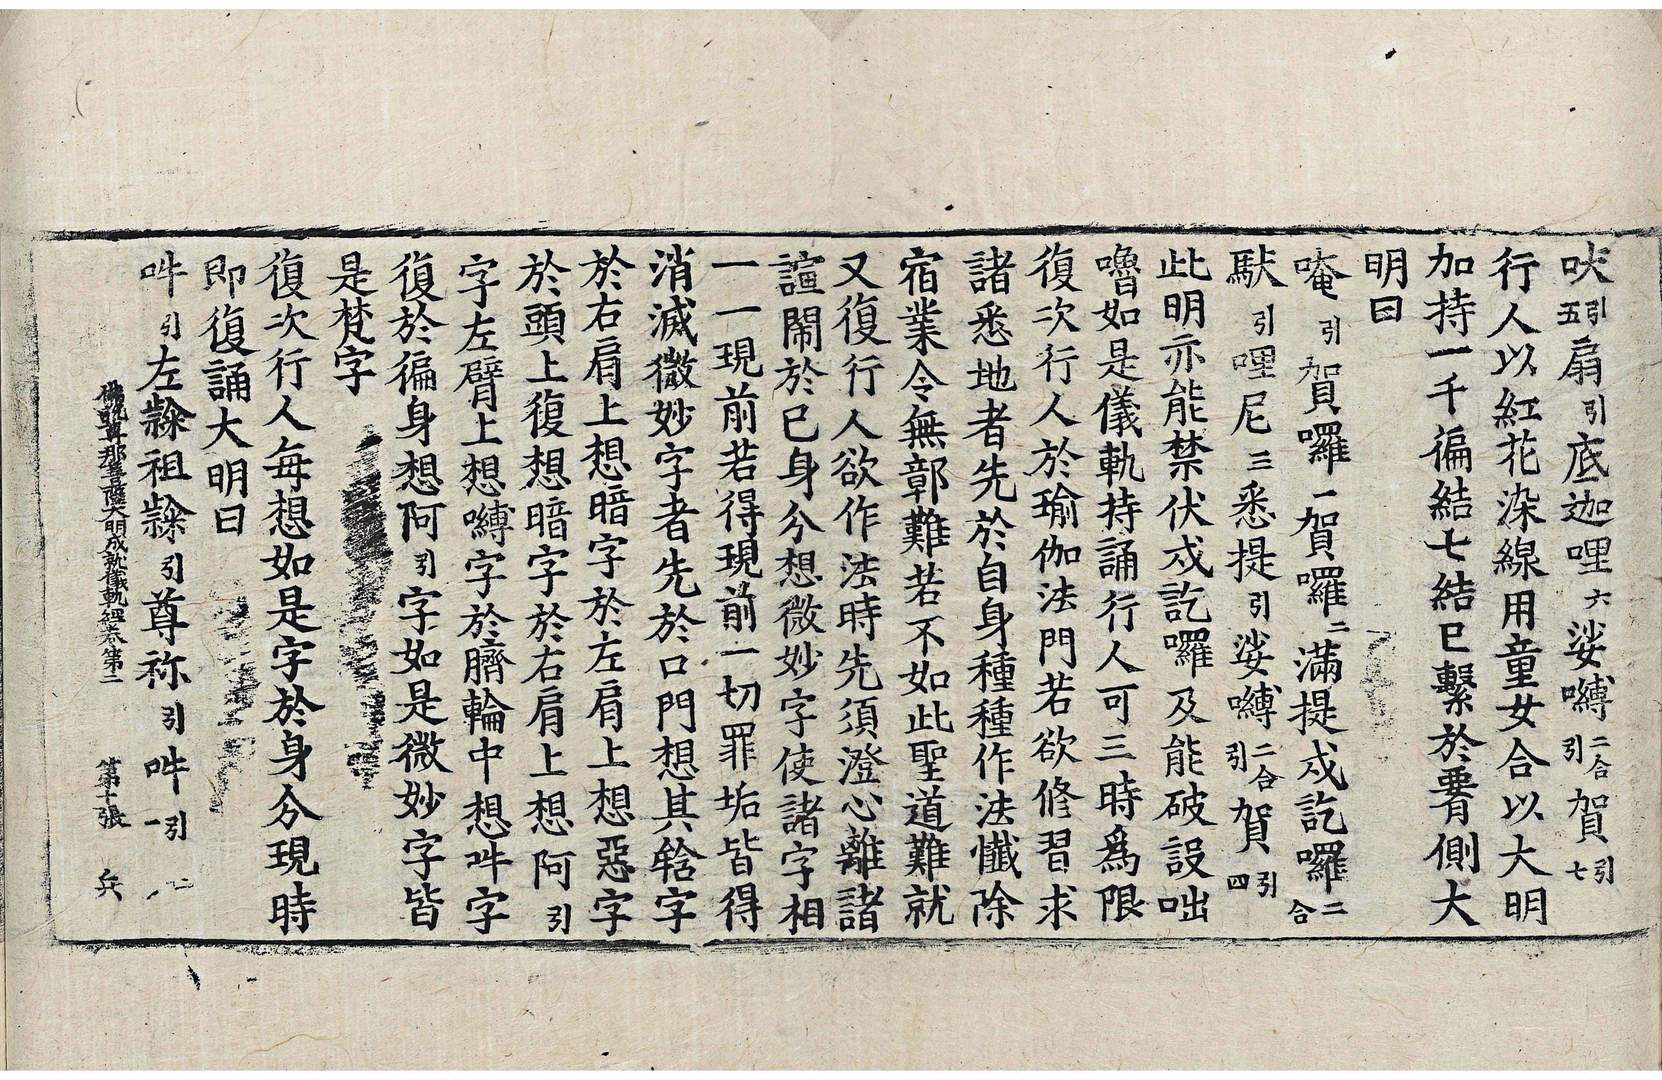 吠引五扇引底迦哩六娑嚩二合引賀引七
行人以紅花染線用童女合以大明
加持一千徧結七結已繫於要側大
明曰
唵引賀囉一賀囉二滿提戍訖囉二合
馱引哩尼三悉提引娑嚩二合引賀引四
此明亦能禁伏戍訖囉及能破設咄
嚕如是儀軌持誦行人可三時為限
復次行人於瑜伽法門若欲修習求
諸悉地者先於自身種種作法懺除
宿業令無鄣難若不如此聖道難就
又復行人欲作法時先須澄心離諸
諠鬧於已身分想微妙字使諸字相
一一現前若得現前一切罪垢皆得
消滅微妙字者先於口門想其𤚥字
於右肩上想暗字於左肩上想惡字
於頭上復想暗字於右肩上想阿引
字左臂上想嚩字於臍輪中想吽字
復於徧身想阿引字如是微妙字皆
是梵字
復次行人每想如是字於身分現時
即復誦大明曰
吽引左隸祖隸引尊祢引吽引一
佛說尊那菩薩大明成就儀軌經卷第二 第十張 兵